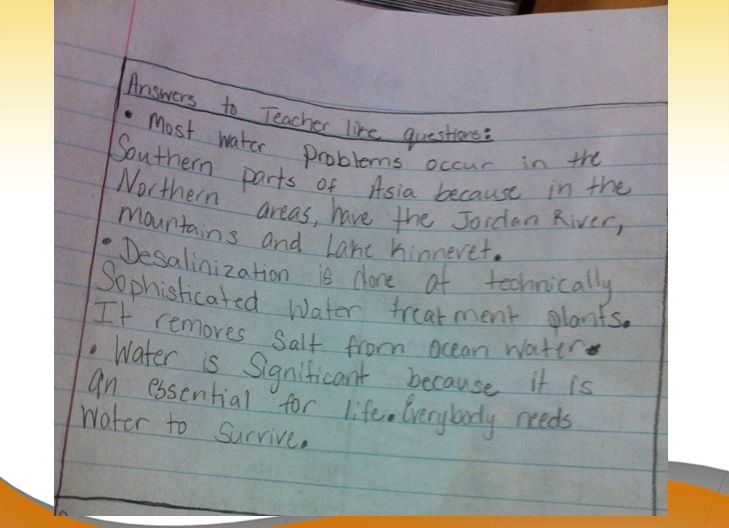 Answers to Teacher like questions:
• Most water problems occur in the
Southern parts of Asia because in the
Northern areas, have the Jordan River,
mountains and Lake Kinneret.
• Desalinization is done at technically
Sophisticated Water treatment plants.
It removes Salt from ocean water.
• Water is Significant because it is
an essential for life. Everybody needs
Water to Survive.